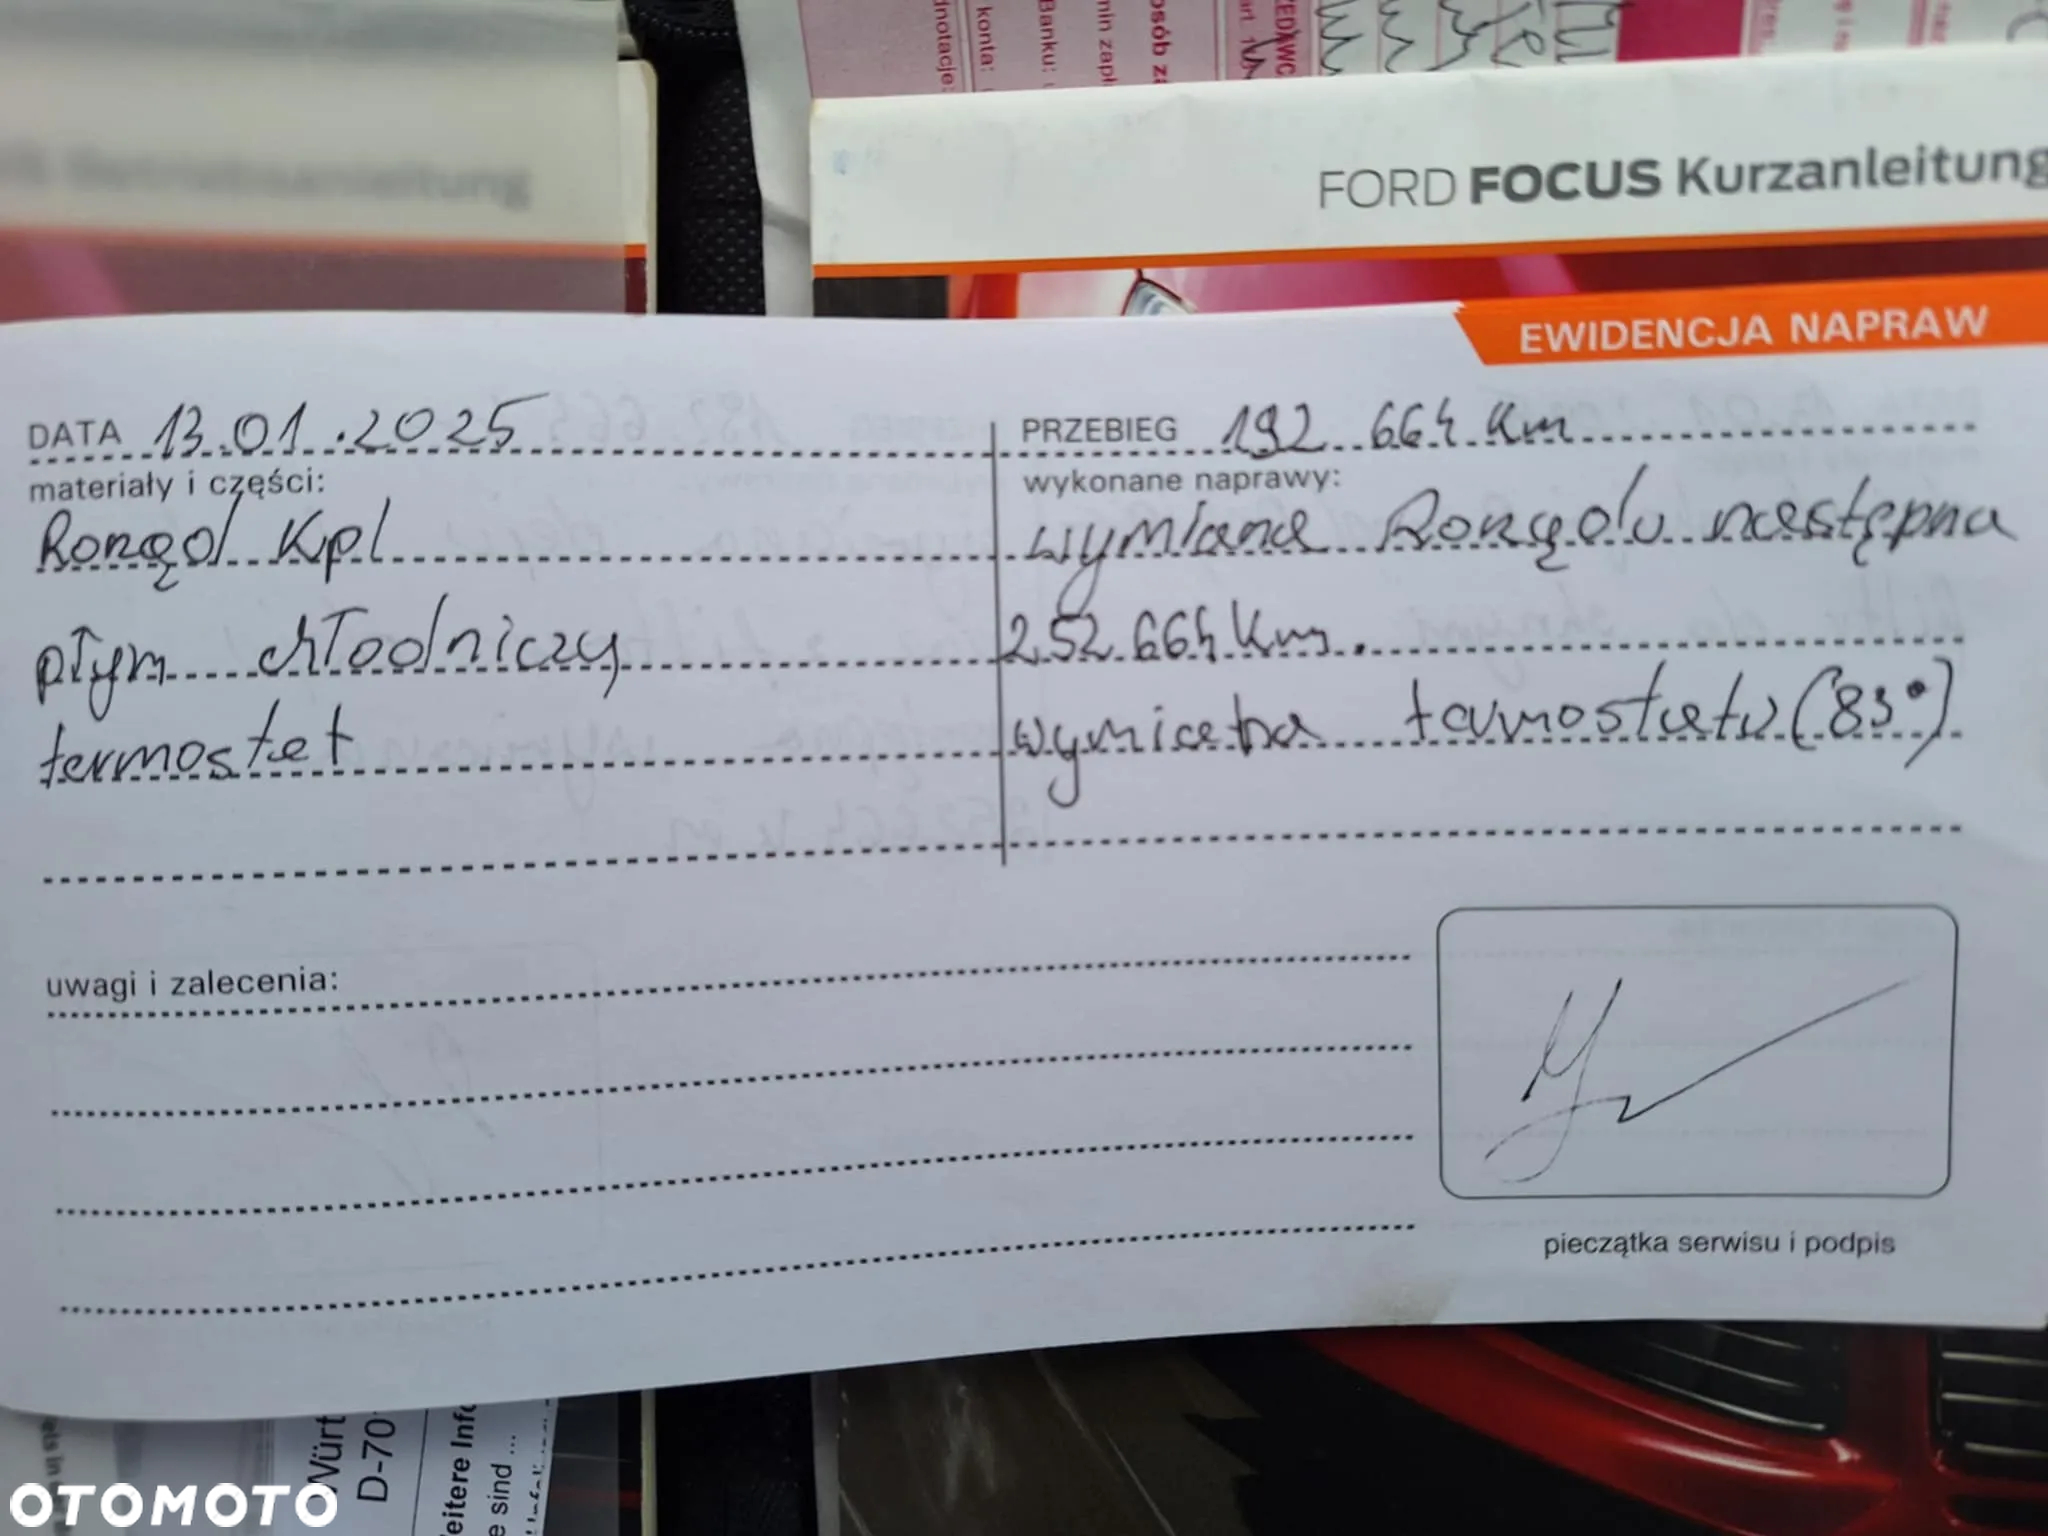 konta:
Banku:
osób za
ZEDAWC
art. 1
Betriebsanleitung
FORD FOCUS Kurzanleitung
EWIDENCJA NAPRAW
DATA 13.01.2025
PRZEBIEG 192 664 km
materiały i części:
wykonane naprawy:
Rozrząd kpl
wymiana Rozrządu następna
płym chłodniczy
252 664 km.
termostat
wymiana termostatu (83°)
uwagi i zalecenia:
pieczątka serwisu i podpis
Würt
D-70
eitere Info
e sind ...
OTOMOTO